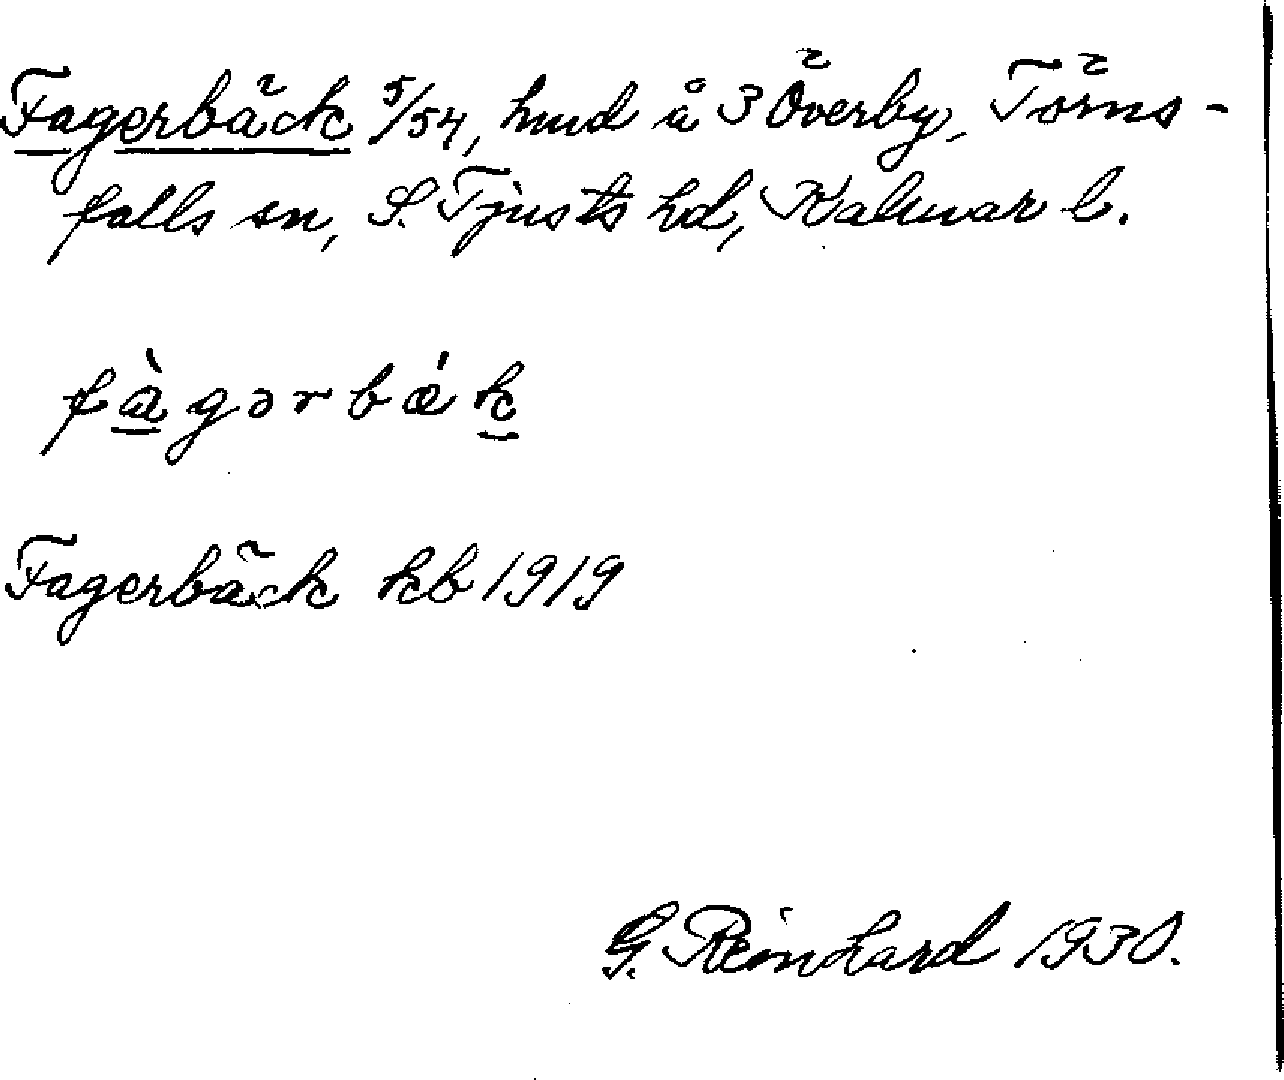 Fagerbäck 5/54, hmd å 3 Överby, Törns-
falls sn, S. Tjusts hd, Kalmar l.
fàgərbǽk
Fagerbäck kb 1919
G. Reinhard 1930.